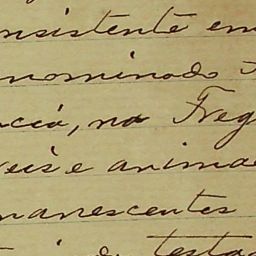 nsistente em
nominado
cia, na Freg
veis e anima
manescentes
testa